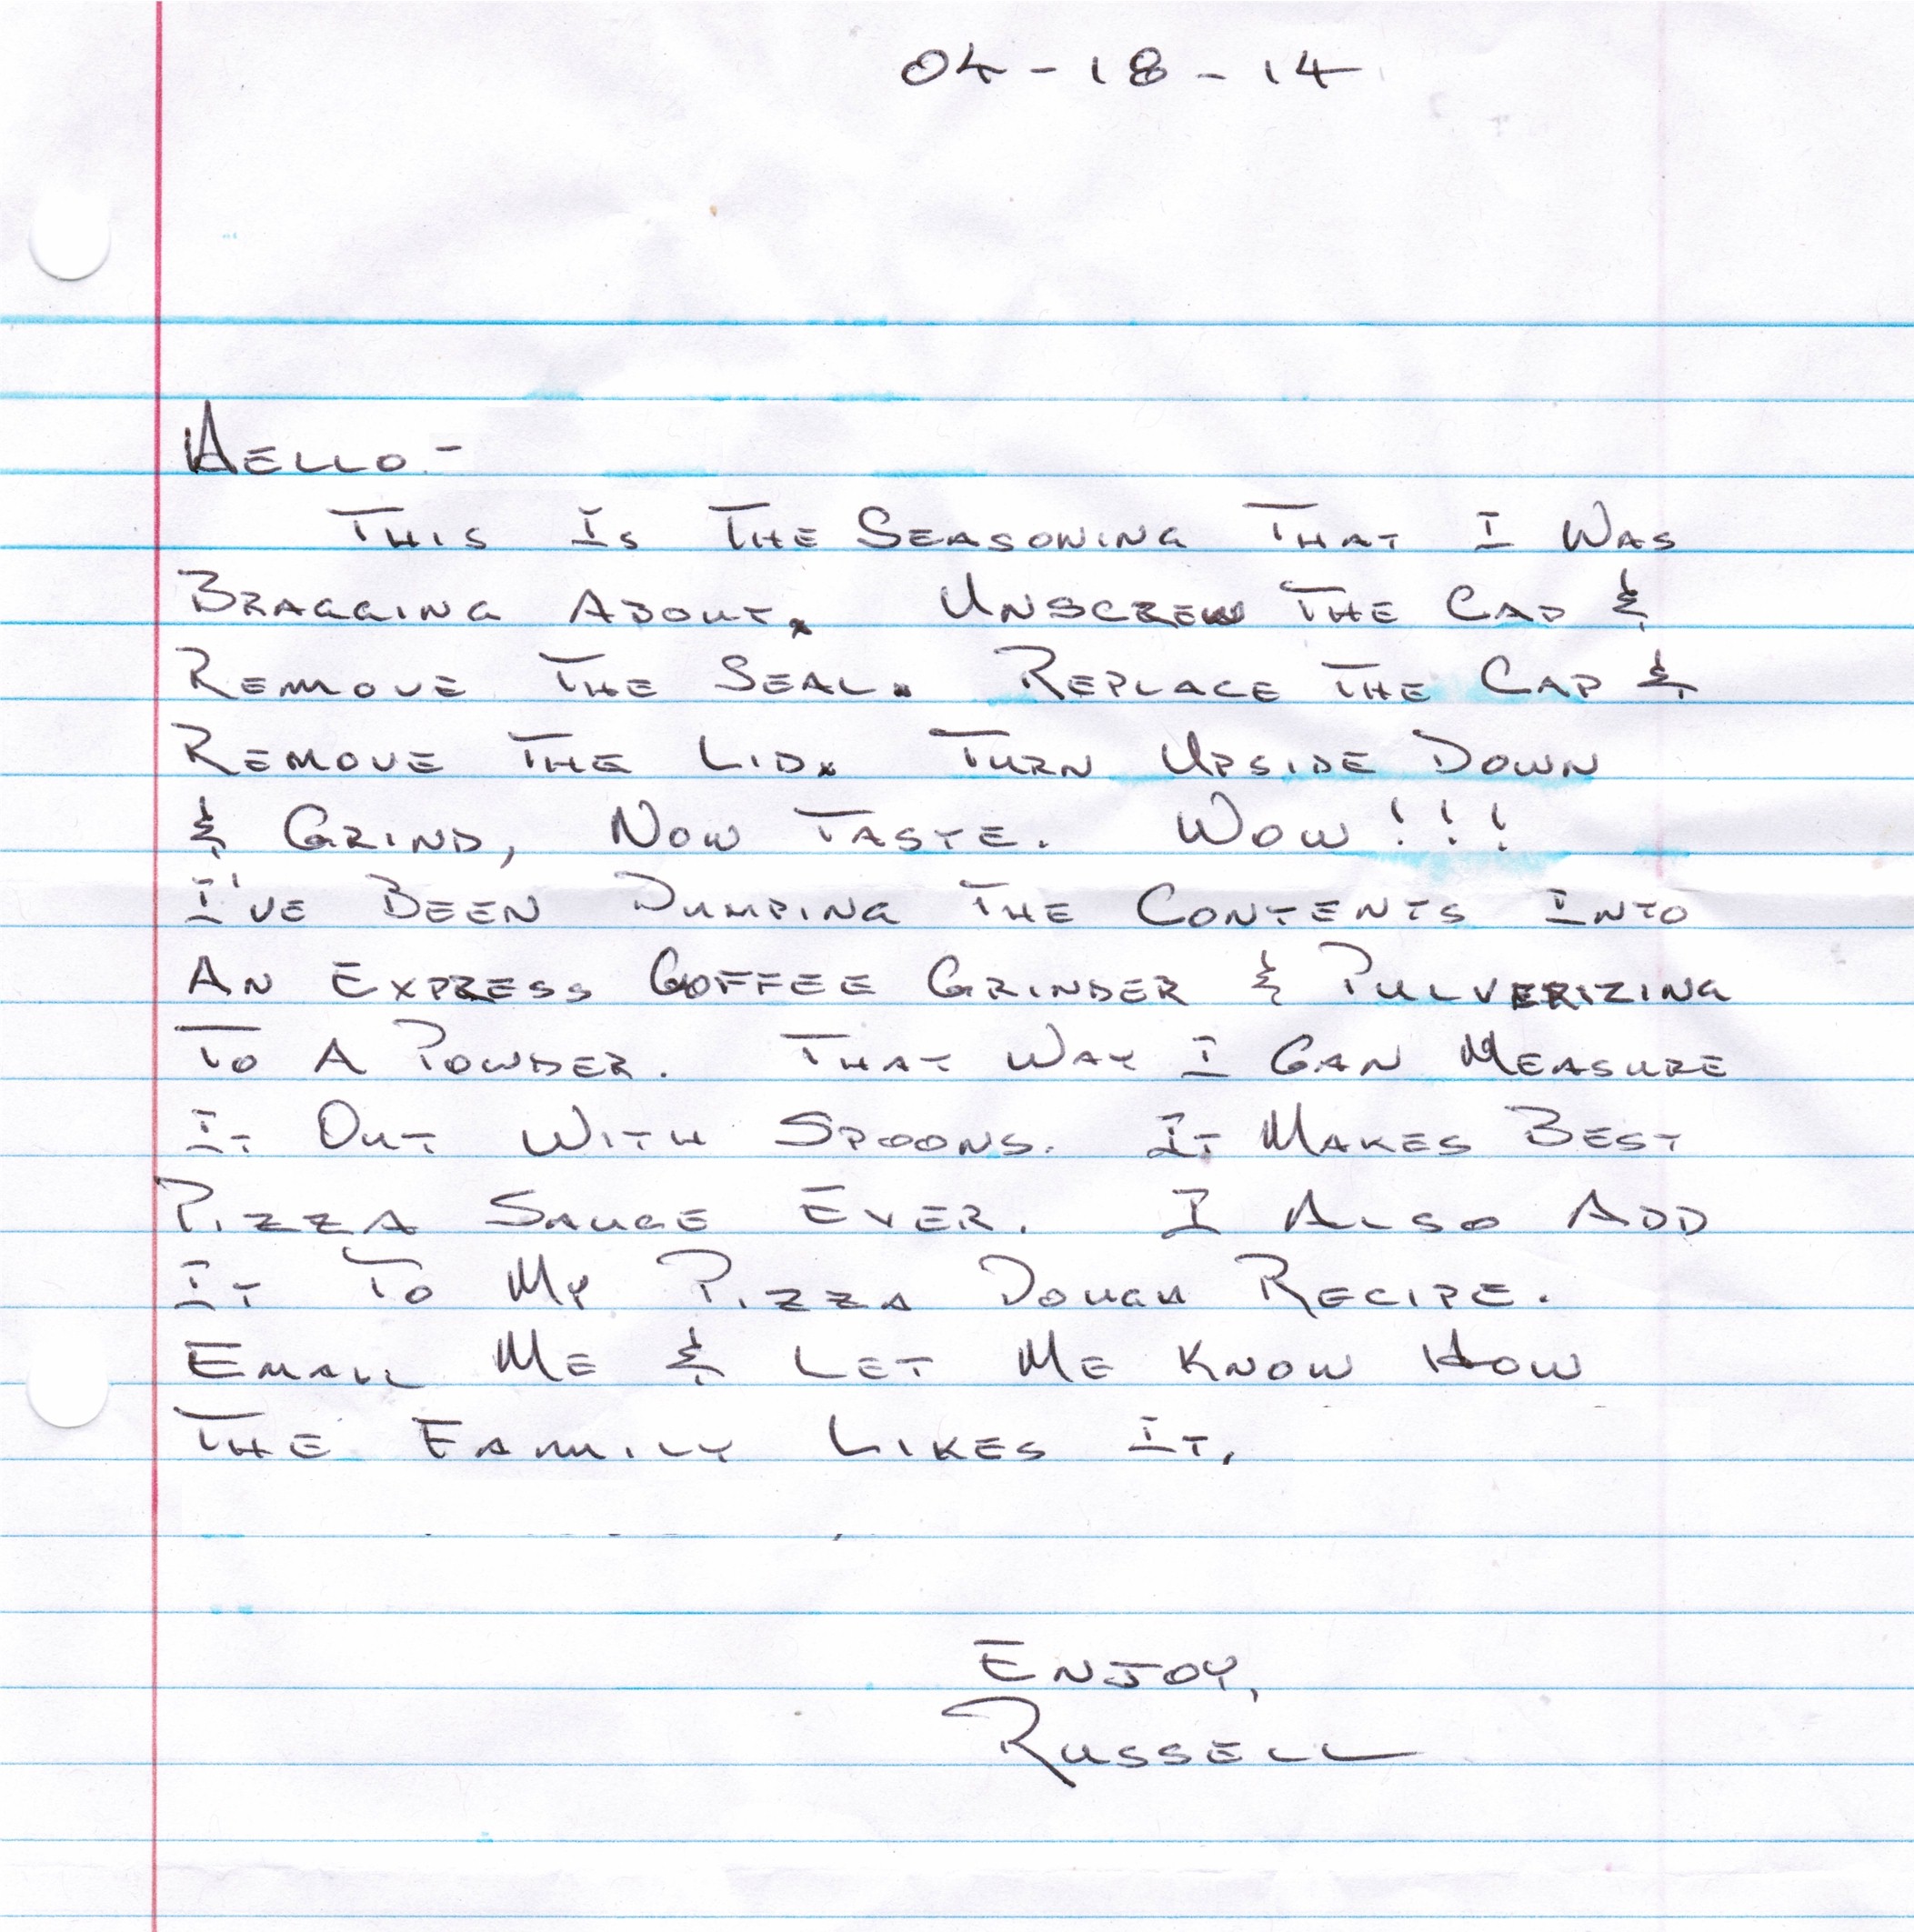 04-18-14
Hello-
This Is The Seasoning That I Was
Bragging About. Unscrew The Cap &
Remove The Seal. Replace The Cap &
Remove The Lid. Turn Upside Down
& Grind, Now Taste. Wow!!!
I've Been Dumping The Contents Into
An Express Coffee Grinder & Pulverizing
To A Powder. That Way I Can Measure
It Out With Spoons. It Makes Best
Pizza Sauce Ever. I Also Add
It To My Pizza Dough Recipe.
Email Me & Let Me Know How
The Family Likes It,
Enjoy,
Russell